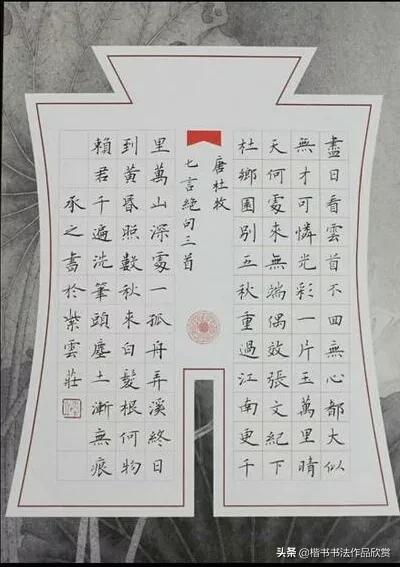 盡日看雲首不回無心都大似
無才可憐光彩一片玉萬里晴
天何處來無端偶效張文紀下
杜鄉園別五秋重過江南更千
唐杜牧
七言絕句三首
里萬山深處一孤舟弄溪終日
到黃昏照數秋來白髮根何物
賴君千遍洗筆頭塵土漸無痕
承之書於紫雲莊
头条 @楷书书法作品欣赏